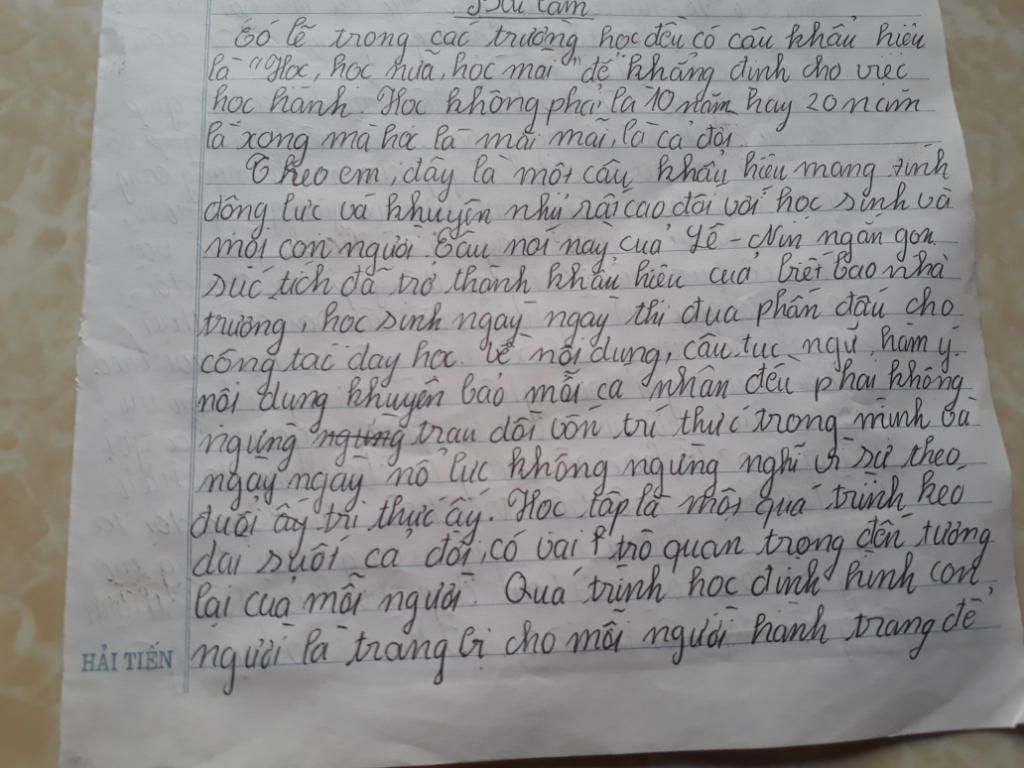 Bài làm
Có lẽ trong các trường học đều có câu khẩu hiệu
là "Học, học nữa, học mãi" để khẳng định cho việc
học hành. Học không phải là 10 năm hay 20 năm
là xong mà học là mãi mãi, là cả đời.
Theo em, đây là một câu khẩu hiệu mang tính
động lực và khuyên nhủ rất cao đối với học sinh và
mỗi con người. Câu nói này của Lê-Nin ngắn gọn
súc tích đã trở thành khẩu hiệu của biết bao nhà
trường, học sinh ngày ngày thi đua phấn đấu cho
công tác dạy học. Về nội dung, câu tục ngữ hàm ý
nội dung khuyên bảo mỗi cá nhân đều phải không
ngừng ngừng trau dồi vốn trí thức trong mình và
ngày ngày nỗ lực không ngừng nghỉ vì sự theo
đuổi ấy tri thức ấy. Học tập là một quá trình kéo
dài suốt cả đời, có vai trò quan trọng đến tương
lai của mỗi người. Quá trình học định hình con
người là trang bị cho mỗi người hành trang để
HẢI TIẾN